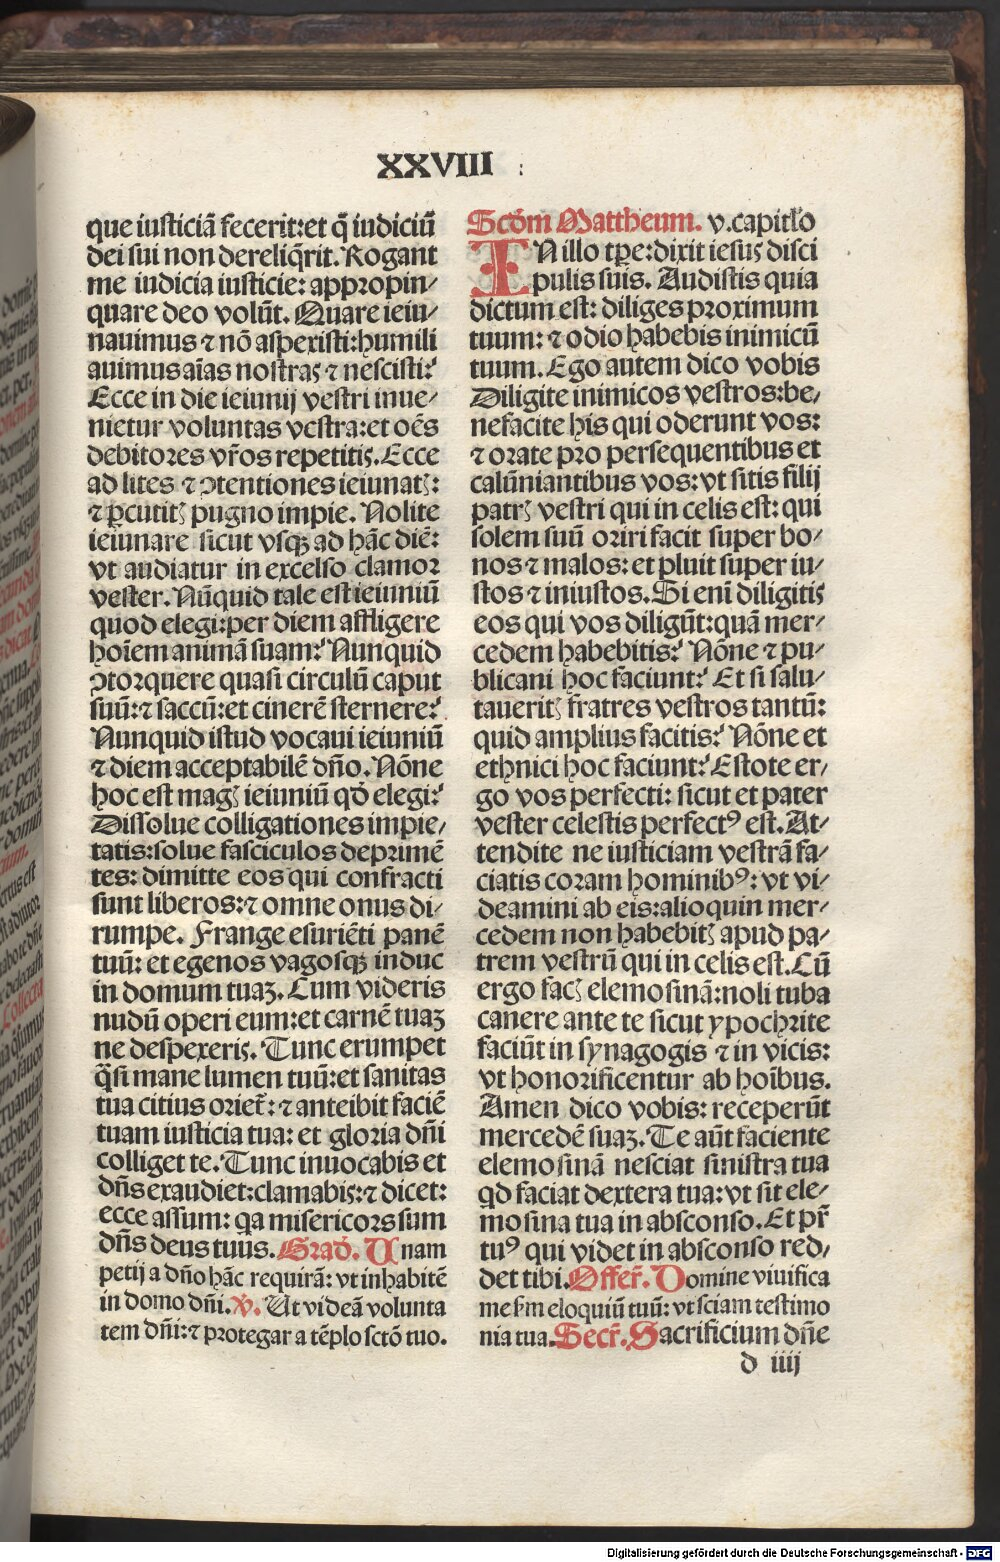 XXVIII :
que iusticiã fecerit:et q̃ iudiciũ
dei sui non dereliq̃rit. Rogant
me iudicia iusticie: appropin/
quare deo volũt. Quare ieiu/
nauimus ⁊ nõ aspexisti:humili
auimus aĩas nostras ⁊ nescisti?
Ecce in die ieiunij vestri inue/
nietur voluntas vestra:et oẽs
debitores vr̃os repetitis. Ecce
ad lites ⁊ ↄtentiones ieiunatꝭ:
⁊ ꝑcutitꝭ pugno impie. Nolite
ieiunare sicut vsqꝫ ad hãc diẽ:
vt audiatur in excelso clamor
vester. Nũquid tale est ieiuniũ
quod elegi:per diem affligere
hoĩem animã suam? Nunquid
ↄtorquere quasi circulũ caput
suũ:⁊ saccũ:et cinerẽ sternere?
Nunquid istud vocaui ieiuniũ
⁊ diem acceptabilẽ dño. Nõne
hoc est magꝭ ieiuniũ qđ elegi?
Dissolue colligationes impie/
tatis:solue fasciculos deprimẽ
tes: dimitte eos qui confracti
sunt liberos:⁊ omne onus di/
rumpe. Frange esuriẽti panẽ
tuũ: et egenos vagosqꝫ induc
in domum tuaꝫ. Cum videris
nudũ operi eum:et carnẽ tuaꝫ
ne despexeris. Tunc erumpet
q̃si mane lumen tuũ:et sanitas
tua citius oriet̃:⁊ anteibit faciẽ
tuam iusticia tua: et gloria dñi
colliget te. Tunc inuocabis et
dñs exaudiet:clamabis:⁊ dicet:
ecce assum: qa misericors sum
dñs deus tuus. Grad̃. Unam
petij a dño hãc requirã: vt inhabitẽ
in domo dñi. ℣. Ut videã volunta
tem dñi:⁊ protegar a tẽplo sctõ tuo.
Scd̃m Mattheum. v. capitĺo
IN illo tꝑe:dixit iesus disci
pulis suis. Audistis quia
dictum est: diliges proximum
tuum: ⁊ odio habebis inimicũ
tuum. Ego autem dico vobis
Diligite inimicos vestros:be/
nefacite his qui oderunt vos:
⁊ orate pro persequentibus et
calũniantibus vos:vt sitis filij
patrꝭ vestri qui in celis est: qui
solem suũ oriri facit super bo/
nos ⁊ malos: et pluit super iu/
stos ⁊ iniustos. Si eni diligitis
eos qui vos diligũt:quã mer/
cedem habebitis? Nõne ⁊ pu/
blicani hoc faciunt? Et si salu/
taueritꝭ fratres vestros tantũ:
quid amplius facitis? Nõne et
ethnici hoc faciunt? Estote er/
go vos perfecti: sicut et pater
vester celestis perfectꝰ est. At/
tendite ne iusticiam vestrã fa/
ciatis coram hominibꝰ: vt vi/
deamini ab eis:alioquin mer/
cedem non habebitꝭ apud pa/
trem vestrũ qui in celis est. Cũ
ergo facꝭ elemosinã:noli tuba
canere ante te sicut ypochrite
faciũt in synagogis ⁊ in vicis:
vt honorificentur ab hoĩbus.
Amen dico vobis: receperũt
mercedẽ suaꝫ. Te aũt faciente
elemosinã nesciat sinistra tua
qđ faciat dextera tua: vt sit ele/
mosina tua in absconso. Et pr̃
tuꝰ qui videt in absconso red/
det tibi. Offer̃. Domine viuifica
me ſm eloquiũ tuũ: vt sciam testimo
nia tua. Secr̃. Sacrificium dñe
d iiij
Digitalisierung gefördert durch die Deutsche Forschungsgemeinschaft - DFG